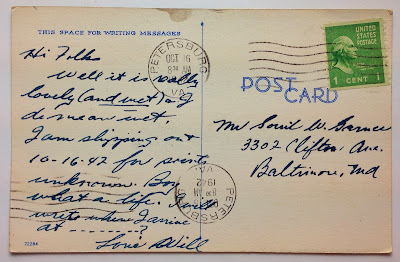 THIS SPACE FOR WRITING MESSAGES
Hi Folks
Well it is really
lovely (and wet) & I
do mean wet.
I am shipping out
10-16-42 for points
unknown. Boy
what a life. I will
write where I arrive
at ----------?
Love Will
72286
PETERSBURG
OCT 16
VA.
UNITED STATES POSTAGE
1 CENT 1
POST CARD
Mr W.
3302 Clifton Ave.
Baltimore, Md
PETERSBURG
VA.
1942